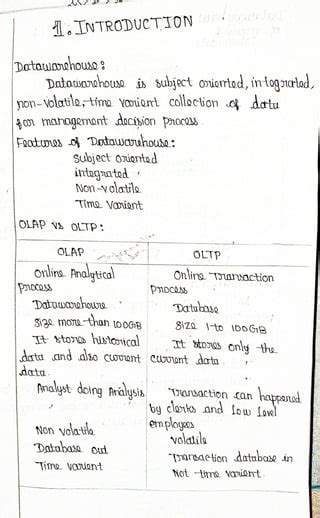 1. INTRODUCTION
Datawarehouse:
Datawarehouse is subject oriented, integrated,
non-volatile, time varient collection of data
for management decision process.
Features of Datawarehouse:
Subject oriented
integrated
Non-volatile
Time Varient
OLAP vs OLTP:
OLAP
Online Analytical
process
Datawarehouse
Size more than 100GB
It stores historical
data and also current
data.
Analyst doing Analysis
Non volatile
Database out
Time varient
OLTP
Online Transaction
process
Database
Size 1 to 100GB
It stores only the
current data.
Transaction can happened
by clerks and low level
employees
volatile
Transaction database in
Not time varient.